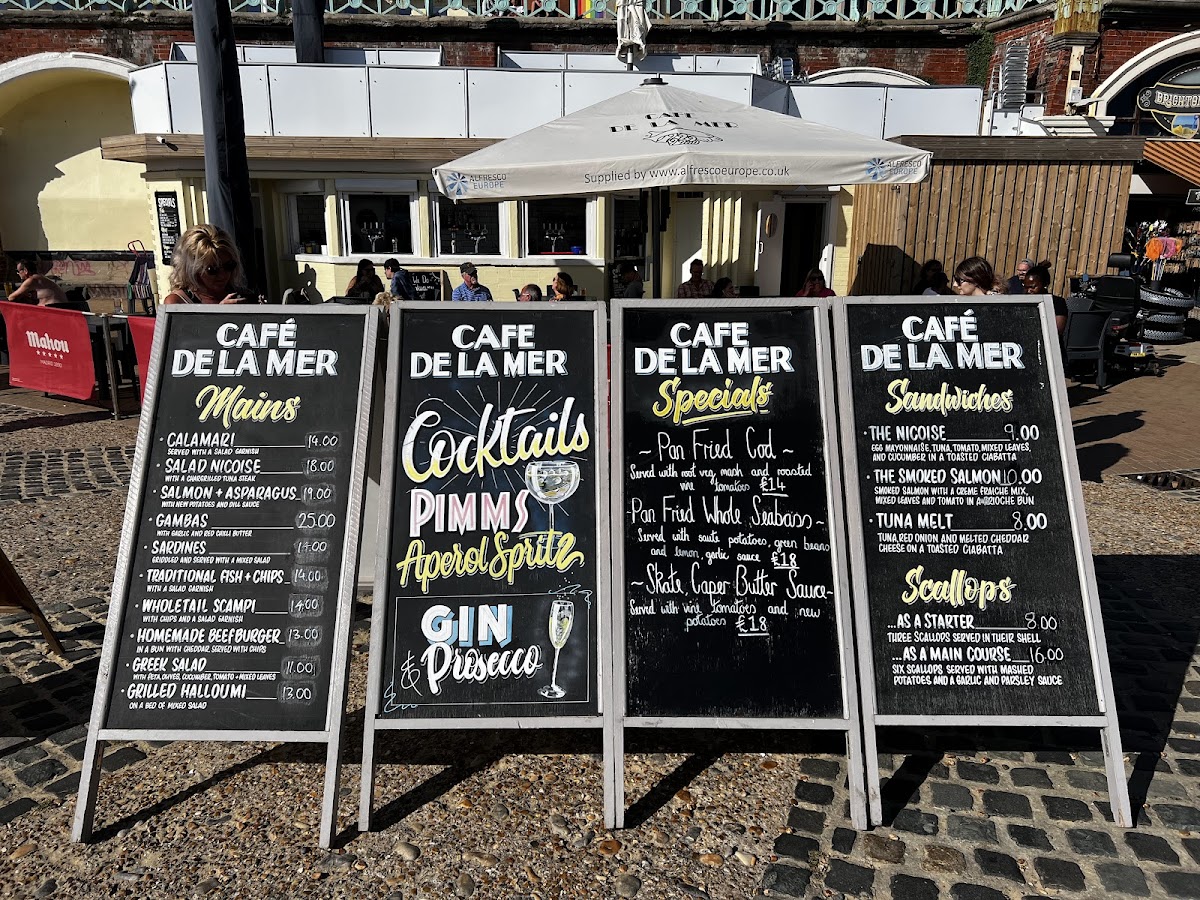 BRIGHTON
CAFE
DE LA MER
ALFRESCO
EUROPE
Supplied by www.alfrescoeurope.co.uk
ALFRESCO
EUROPE
SPECIALS
Mahou
CAFÉ
DE LA MER
Mains
· CALAMARI 14.00
SERVED WITH A SALAD GARNISH
· SALAD NICOISE 18.00
WITH A CHARGRILLED TUNA STEAK
· SALMON + ASPARAGUS 19.00
WITH NEW POTATOES AND DILL SAUCE
· GAMBAS 25.00
WITH GARLIC AND RED CHILLI BUTTER
· SARDINES 14.00
GRIDDLED AND SERVED WITH A MIXED SALAD
· TRADITIONAL FISH + CHIPS 14.00
WITH A SALAD GARNISH
· WHOLETAIL SCAMPI 14.00
WITH CHIPS AND A SALAD GARNISH
· HOMEMADE BEEFBURGER 13.00
IN A BUN WITH CHEDDAR, SERVED WITH CHIPS
· GREEK SALAD 11.00
WITH FETA, OLIVES, CUCUMBER, TOMATO + MIXED LEAVES
· GRILLED HALLOUMI 13.00
ON A BED OF MIXED SALAD
CAFE
DE LA MER
Cocktails
PIMMS
Aperol Spritz
GIN
& Prosecco
CAFE
DE LA MER
Specials
~ Pan Fried Cod ~
Served with root veg, mash and roasted
vine tomatoes £14
~Pan Fried Whole Seabass~
Served with saute potatoes, green beans
and lemon, garlic sauce £18
~ Skate Caper Butter Sauce~
Served with vine tomatoes and new
potatoes £18
CAFÉ
DE LA MER
Sandwiches
· THE NICOISE 9.00
EGG MAYONNAISE, TUNA, TOMATO, MIXED LEAVES,
AND CUCUMBER IN A TOASTED CIABATTA
· THE SMOKED SALMON 10.00
SMOKED SALMON WITH A CREME FRAICHE MIX,
MIXED LEAVES AND TOMATO IN A BRIOCHE BUN
· TUNA MELT 8.00
TUNA, RED ONION AND MELTED CHEDDAR
CHEESE ON A TOASTED CIABATTA
Scallops
...AS A STARTER 8.00
THREE SCALLOPS SERVED IN THEIR SHELL
...AS A MAIN COURSE 16.00
SIX SCALLOPS SERVED WITH MASHED
POTATOES AND A GARLIC AND PARSLEY SAUCE